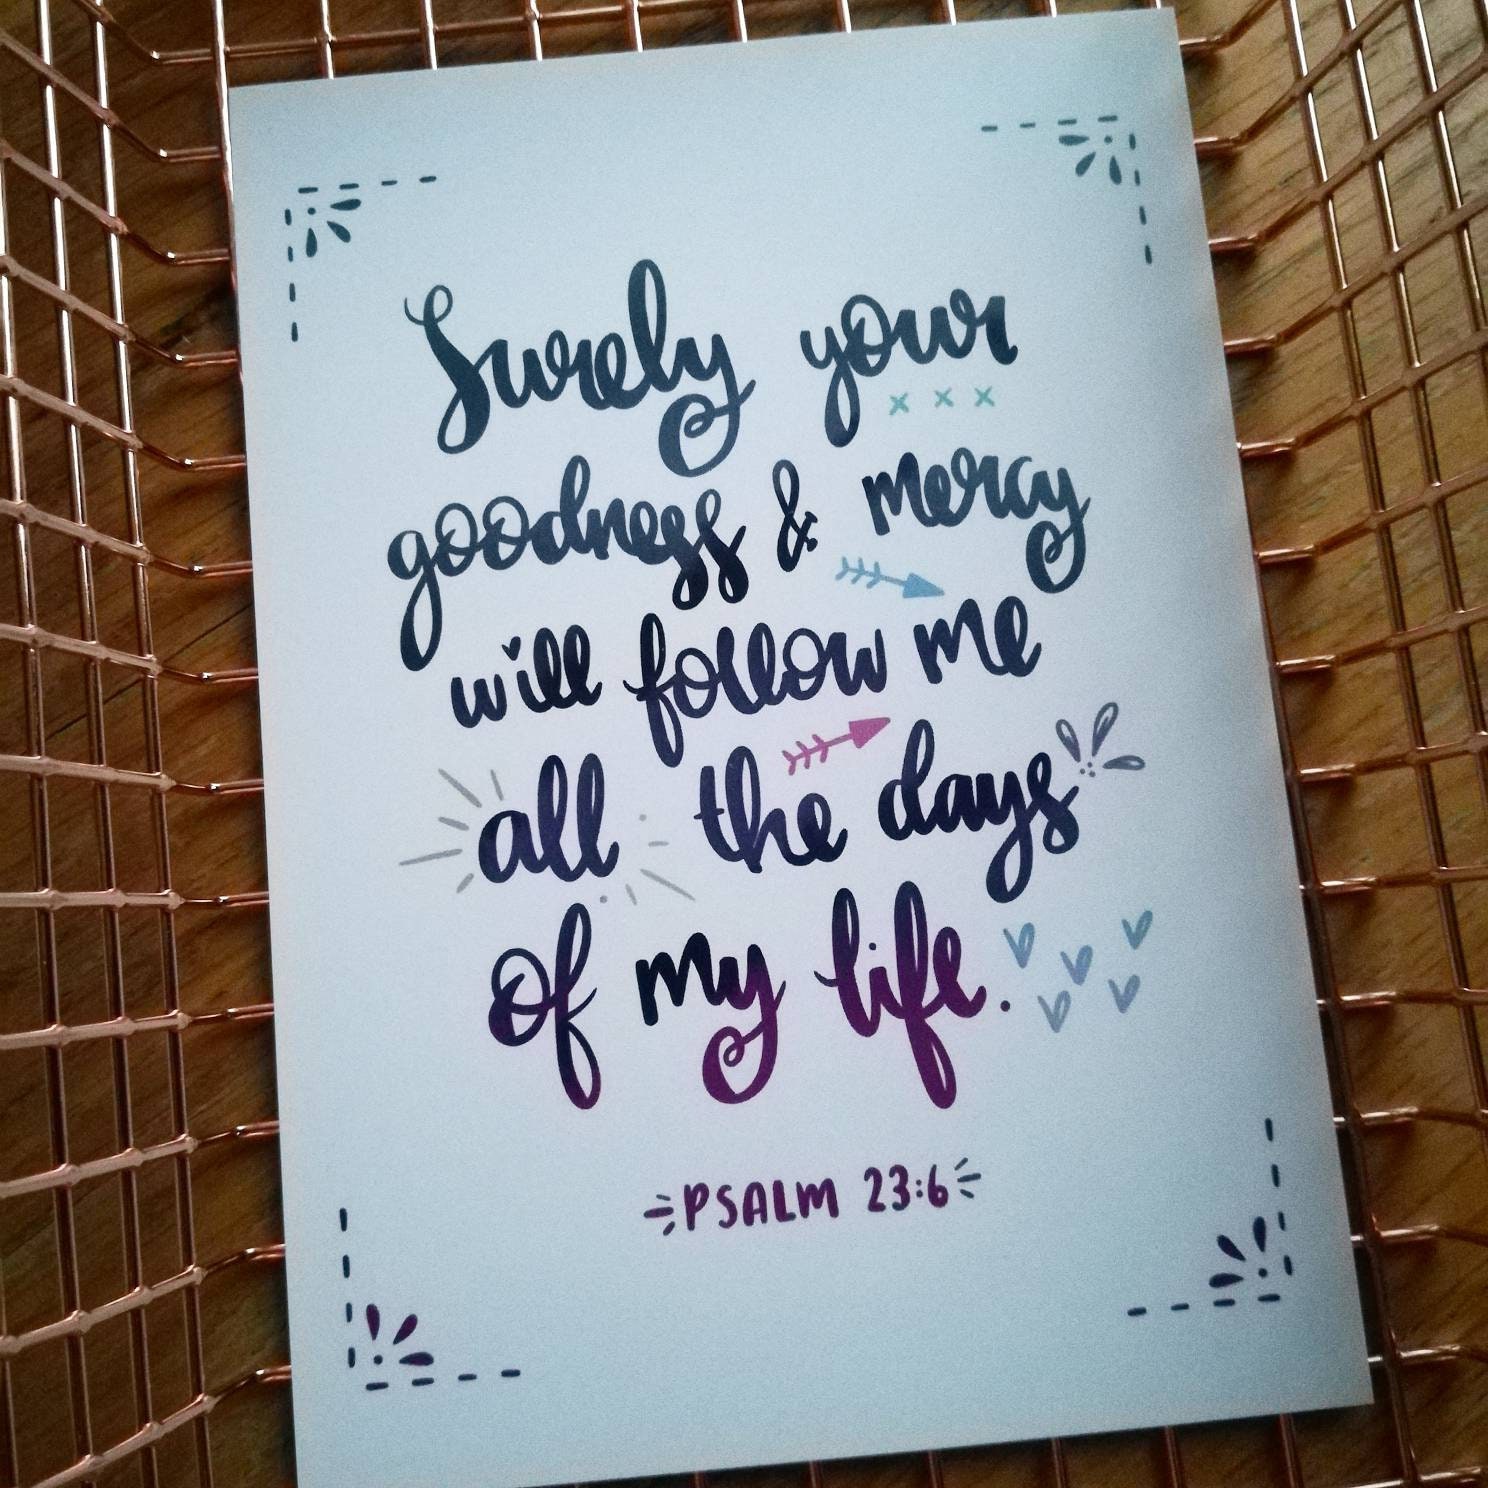 Surely your
goodness & mercy
will follow me
all the days
of my life.
PSALM 23:6